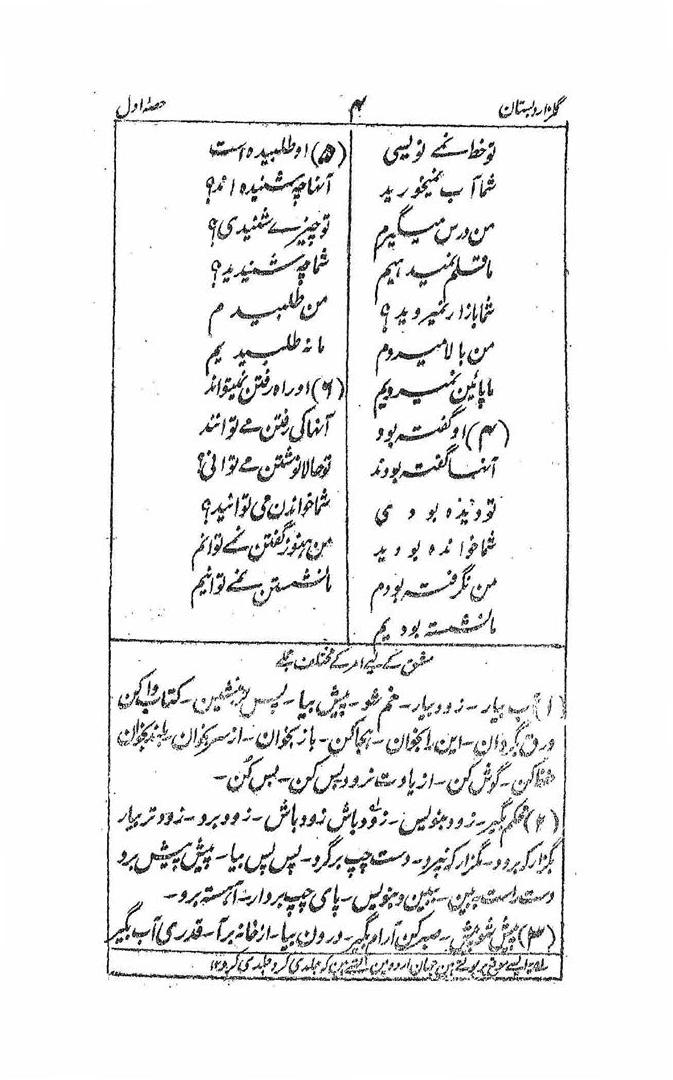 گلزار دبستان
۴
حصۂ اول
تو خط نمے نویسی
شما آب نمیخورید
من درس میگیرم
ما قلم نمیدہیم
شما بازار نمیروید؟
من بالا میروم
ما پائین نمیرویم
(۴) او گفتہ بود
آنہا گفتہ بودند
تو دیدہ بودی
شما خواندہ بودید
من نگرفتہ بودم
ما نشستہ بودیم
(۵) او طلبیدہ است
آنہا چہ شنیدہ اند؟
تو چیزے شنیدی؟
شما چہ شنیدید؟
من طلبیدم
ما نہ طلبیدیم
(۶) او راہ رفتن نمیتواند
آنہا کی رفتن مے توانند
تو حالا نوشتن مے توانی؟
شما خواندن می توانید؟
من ہنوز گفتن نمے توانم
ما نشستن نمے توانیم
مشق کے لیے امر کے مختلف جملے
(۱) آب بیار۔ زود بیار۔ خم شو۔ پیش بیا۔ پس بنشین۔ کتاب وا کن
ورق بگردان۔ این را بخوان۔ ہجا کن۔ باز بخوان۔ از سر بخوان۔ بلند بخوان
حفظ کن۔ گوش کن۔ از یادت نرود۔ پس کن۔ بس کن۔
(۲) محکم بگیر۔ زود بنویس۔ زود باش زود باش۔ زود برو۔ زود تر بیار
بگزار کہ برود۔ مگزار کہ نپرد۔ دست چپ برگرد۔ پس پس بیا۔ پیش پیش برو
دست راست ببین۔ ببین و بنویس۔ پای چپ بردار۔ آہستہ برو۔
(۳) پیش شو پیش۔ صبر کن آرام بگیر۔ درون بیا۔ از خانہ برآ۔ قدری آب بگیر
لہ یہ ایسے موقع پر بولتے ہین جہان اردو مین کہتے ہین کہ جلدی کرو جلدی کرو ۱۲